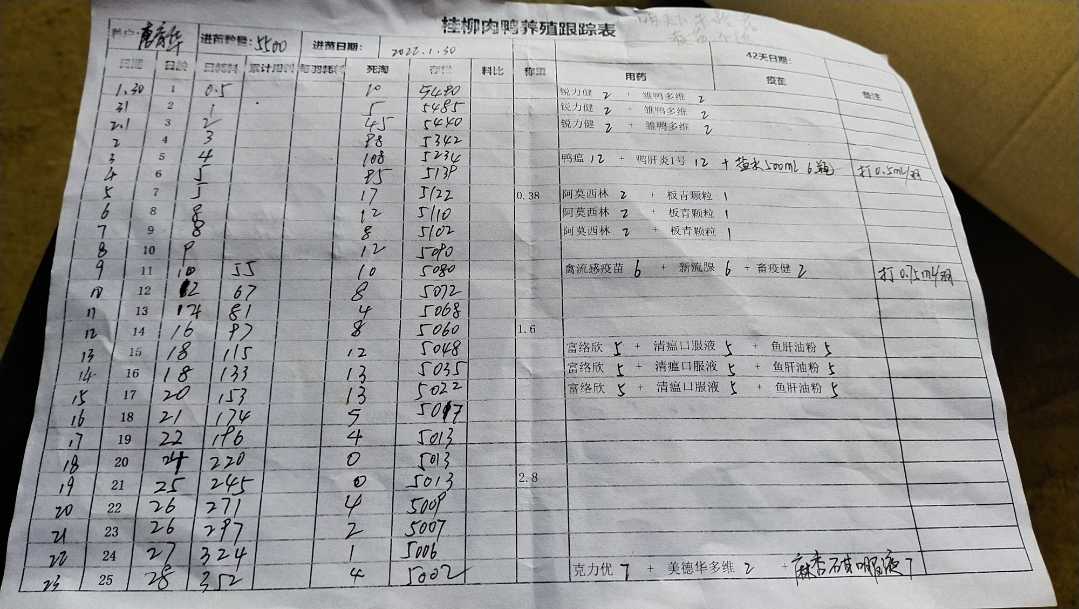 桂柳肉鸭养殖跟踪表
养户: 进苗数量: 5500 进苗日期: 2022.1.30 42天日期:
日期 日龄 日耗料 累计用料 死淘 存栏 料比 称重 用药 疫苗 备注
1.30 1 0.5 10 5490 锐力健 2 + 雏鸭多维 2
31 2 1 5 5485 锐力健 2 + 雏鸭多维 2
2.1 3 2 45 5440 锐力健 2 + 雏鸭多维 2
2 4 3 98 5342
3 5 4 108 5234 鸭瘟 12 + 鸭肝炎1号 12 + 500mL 6瓶 打0.5mL/羽
4 6 5 85 5139
5 7 5 17 5122 0.38 阿莫西林 2 + 板青颗粒 1
6 8 8 12 5110 阿莫西林 2 + 板青颗粒 1
7 9 8 8 5102 阿莫西林 2 + 板青颗粒 1
8 10 9 12 5090
9 11 10 55 10 5080 禽流感疫苗 6 + 新流腺 6 + 畜疫健 2 打0.75ml/羽
10 12 12 67 8 5072
11 13 14 81 4 5068
12 14 16 97 8 5060 1.6
13 15 18 115 12 5048 富络欣 5 + 清瘟口服液 5 + 鱼肝油粉 5
14 16 18 133 13 5035 富络欣 5 + 清瘟口服液 5 + 鱼肝油粉 5
15 17 20 153 13 5022 富络欣 5 + 清瘟口服液 5 + 鱼肝油粉 5
16 18 21 174 5 5017
17 19 22 196 4 5013
18 20 24 220 0 5013
19 21 25 245 0 5013 2.8
20 22 26 271 4 5009
21 23 26 297 2 5007
22 24 27 324 1 5006
23 25 28 352 4 5002 克力优 7 + 美德华多维 2 + 麻杏石甘口服液 7